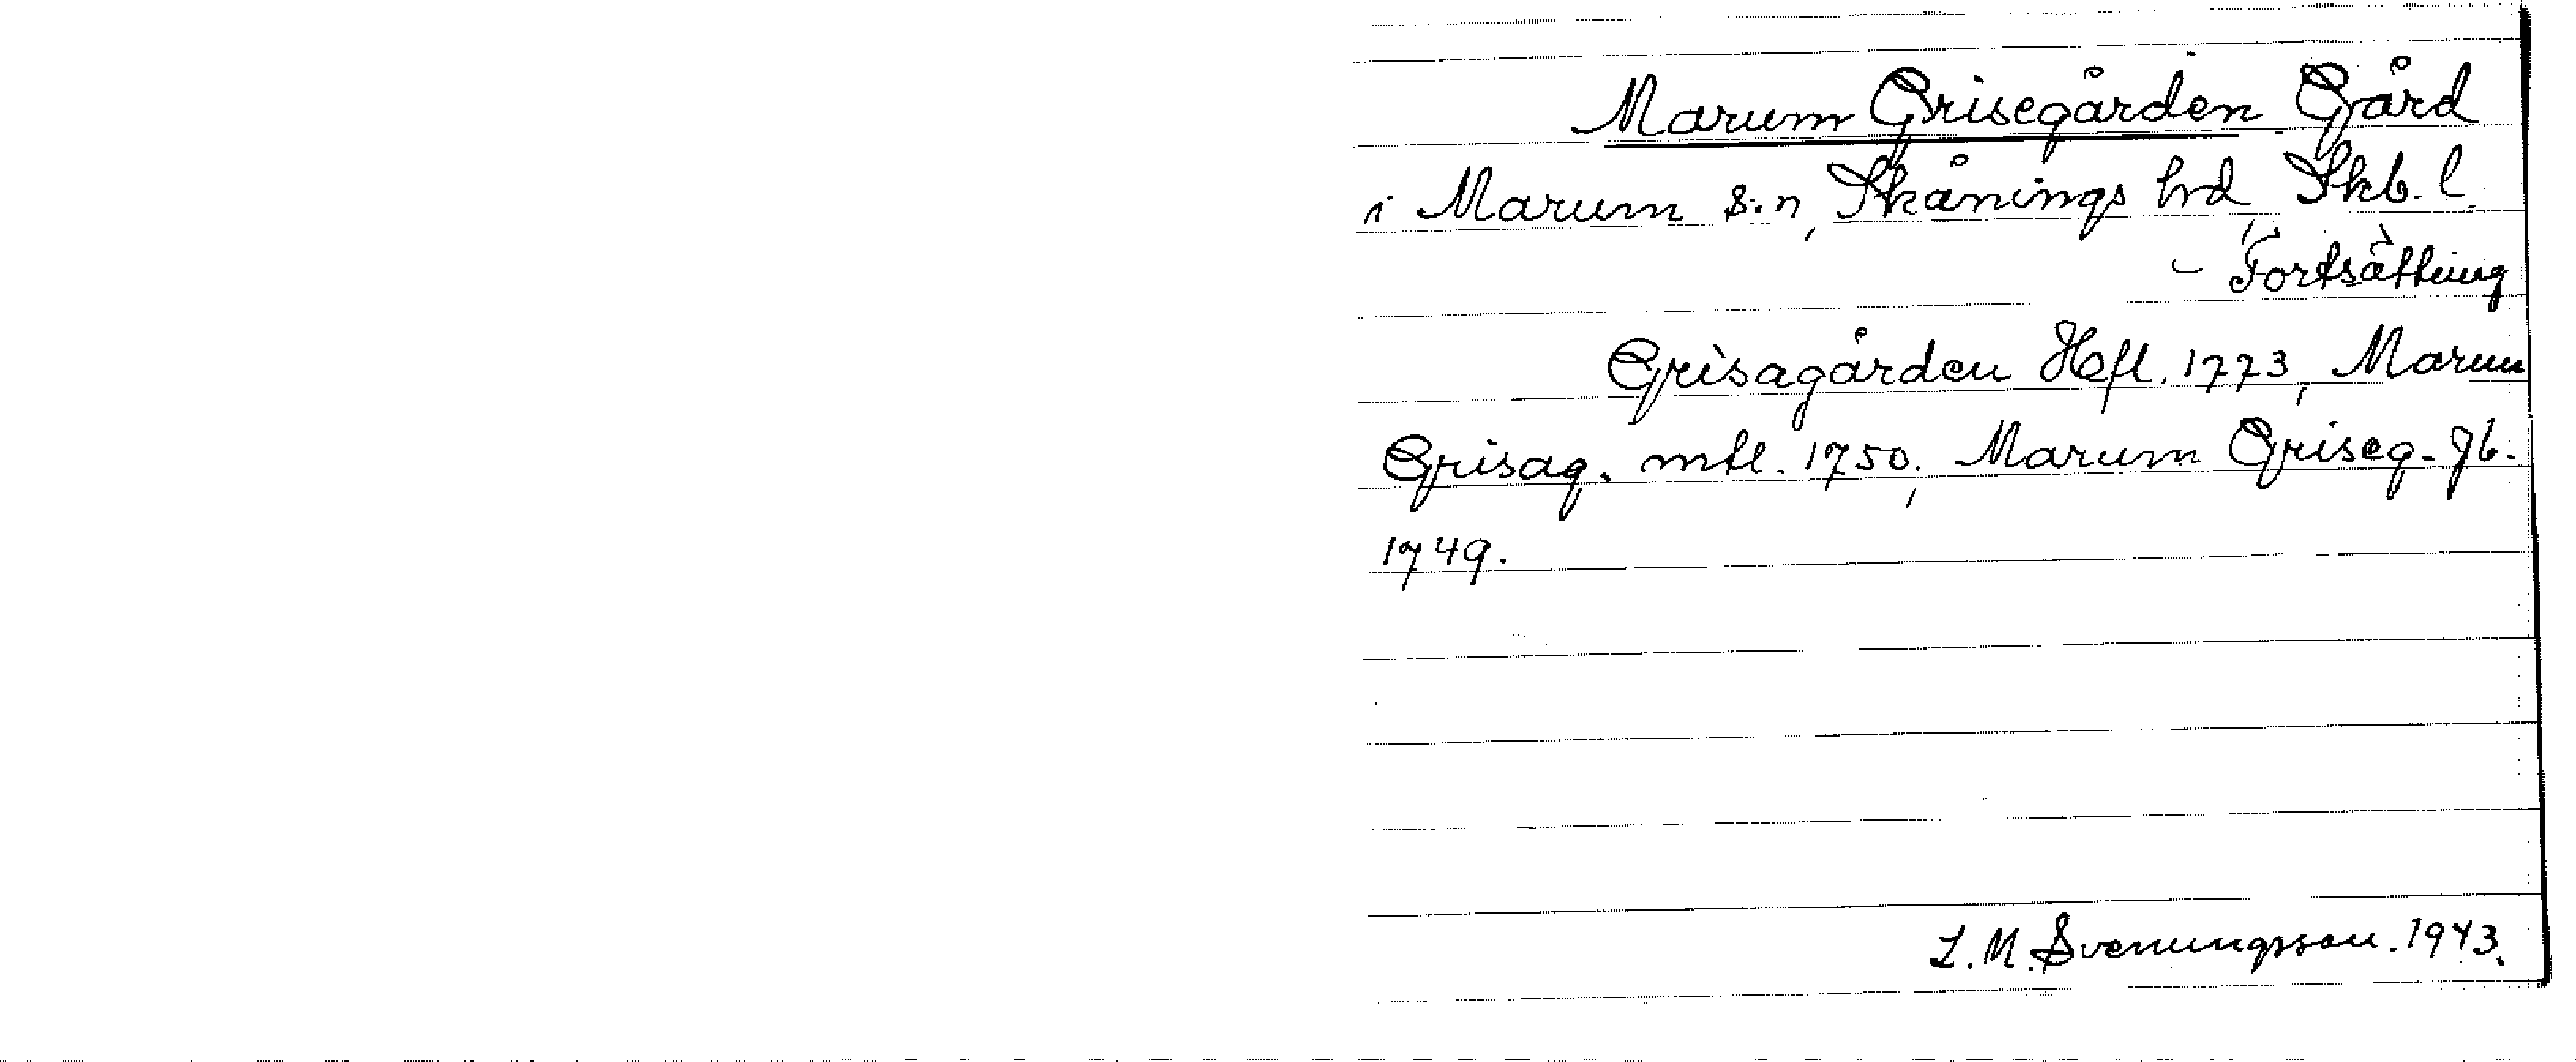 Marum Grisegården Gård
i Marum s:n, Skånings hd Skb. l.
- Fortsättning
Grisagården Hfl. 1773, Marum
Grisag. mtl. 1750, Marum Griseg. jb.
1749.
L. M. Svenungsson. 1943.